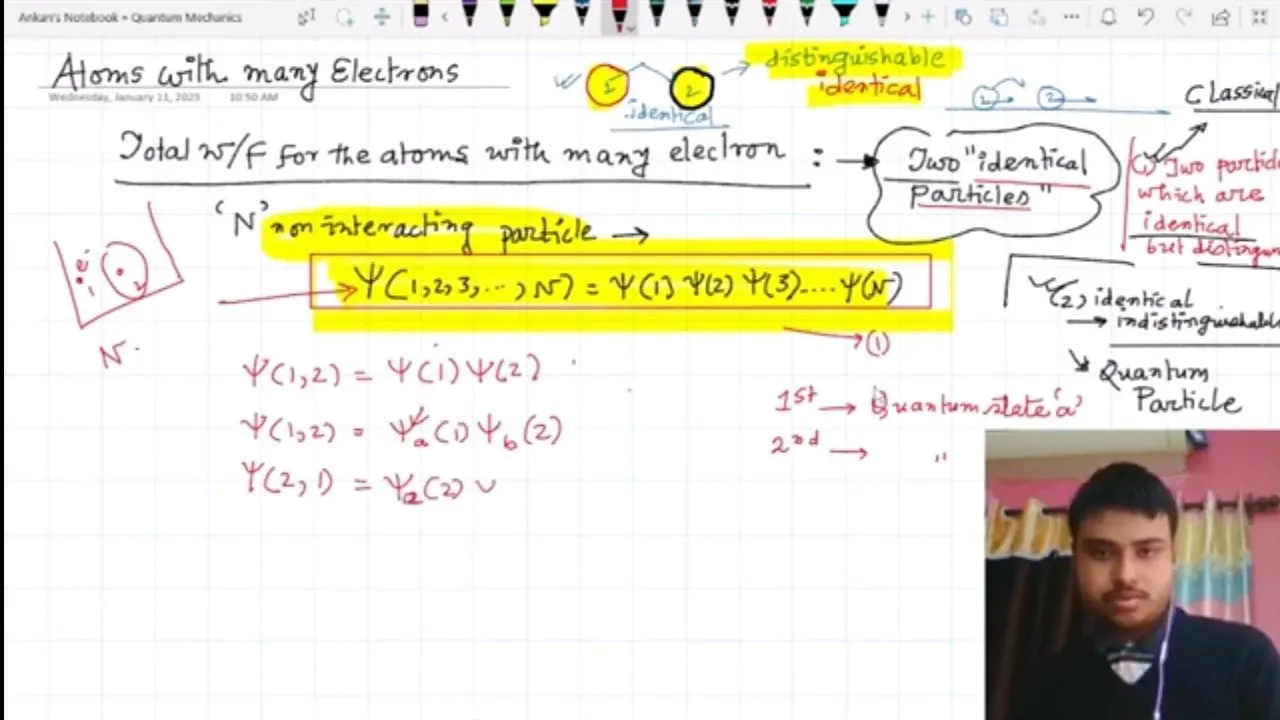 Ankan's Notebook » Quantum Mechanics
Atoms with many Electrons
Wednesday, January 11, 2023 10:50 AM
1 2
identical
distinguishable
identical
1 2
Classical
Total W/F for the atoms with many electron :
Two "identical
Particles"
(1) Two particle
which are
identical
but distingui
'N' non interacting particle →
Ψ(1,2,3,..., N) = Ψ(1) Ψ(2) Ψ(3).... Ψ(N)
→ (1)
(2) identical
→ indistinguishable
Quantum
Particle
e⁻
1 2
N.
Ψ(1,2) = Ψ(1) Ψ(2)
Ψ(1,2) = Ψa(1) Ψb(2)
Ψ(2,1) = Ψa(2)
1st → Quantum state 'a'
2nd → "